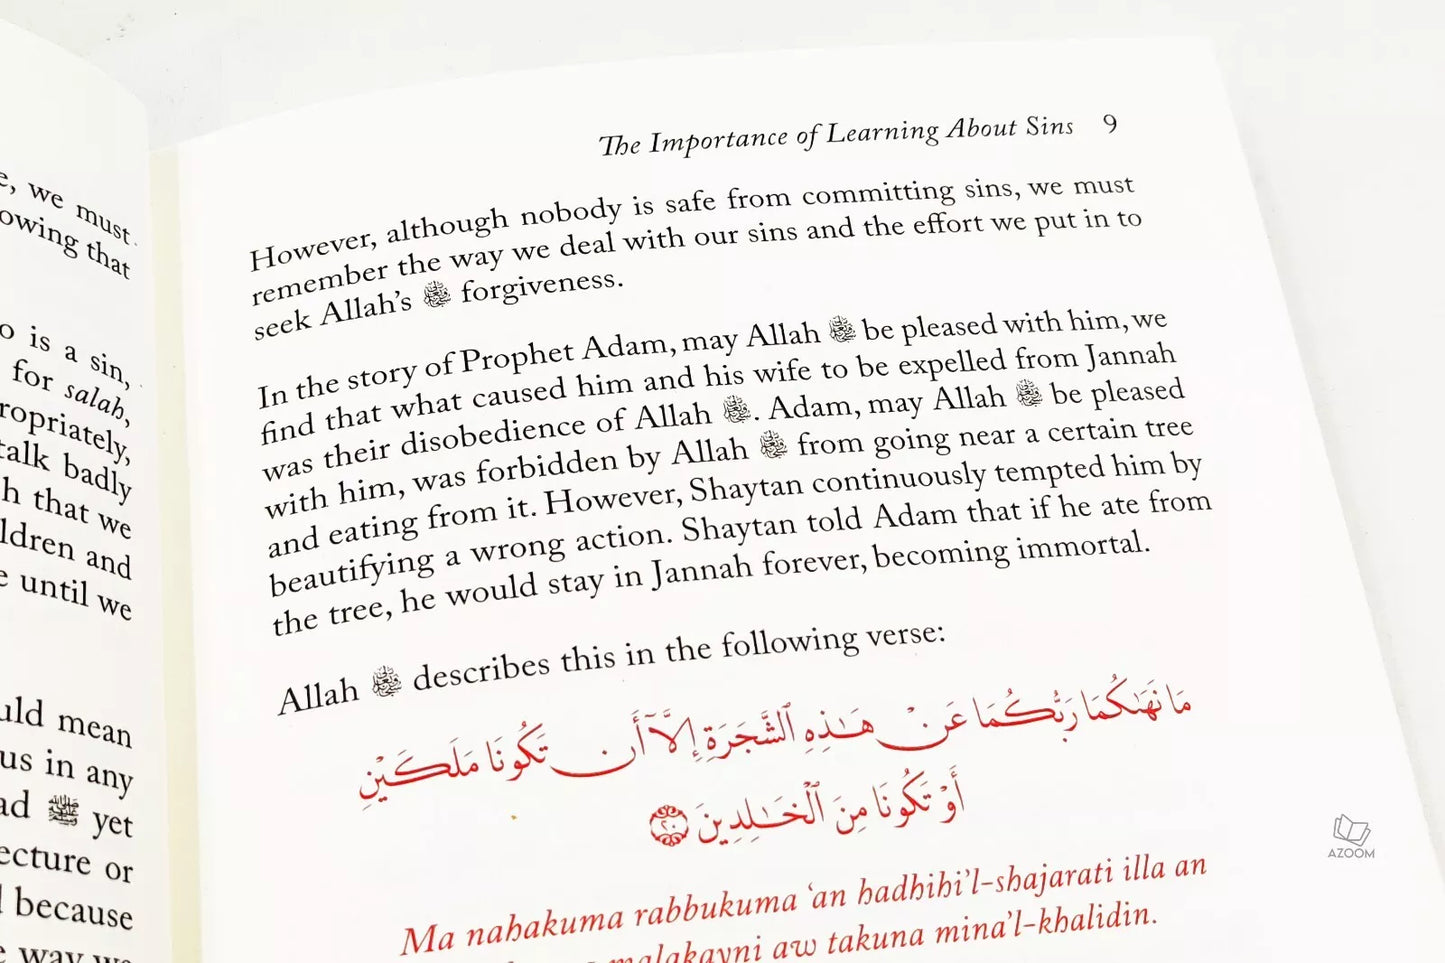 e, we must
owing that
o is a sin,
for salah,
ropriately,
talk badly
h that we
ldren and
e until we
uld mean
us in any
ad ﷺ yet
ecture or
because
e way we
The Importance of Learning About Sins 9
However, although nobody is safe from committing sins, we must
remember the way we deal with our sins and the effort we put in to
seek Allah’s forgiveness.
In the story of Prophet Adam, may Allah be pleased with him, we
find that what caused him and his wife to be expelled from Jannah
was their disobedience of Allah . Adam, may Allah be pleased
with him, was forbidden by Allah from going near a certain tree
and eating from it. However, Shaytan continuously tempted him by
beautifying a wrong action. Shaytan told Adam that if he ate from
the tree, he would stay in Jannah forever, becoming immortal.
Allah describes this in the following verse:
مَا نَهَىٰكُمَا رَبُّكُمَا عَنْ هَـٰذِهِ ٱلشَّجَرَةِ إِلَّآ أَن تَكُونَا مَلَكَيْنِ
أَوْ تَكُونَا مِنَ ٱلْخَـٰلِدِينَ ٢٠
Ma nahakuma rabbukuma ‘an hadhihi’l-shajarati illa an
malakayni aw takuna mina’l-khalidin.
AZOOM